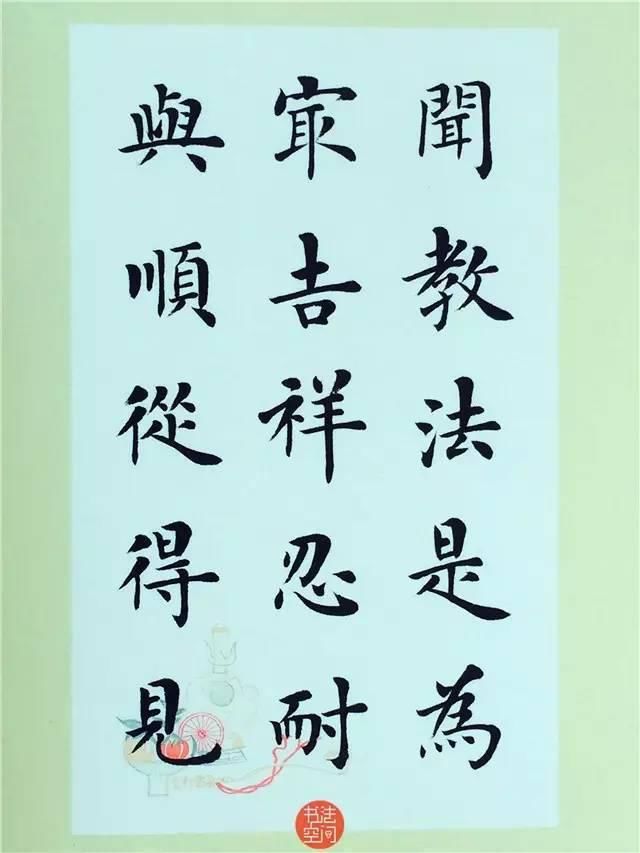 聞教法是為
冣吉祥忍耐
與順從得見
书法
空间